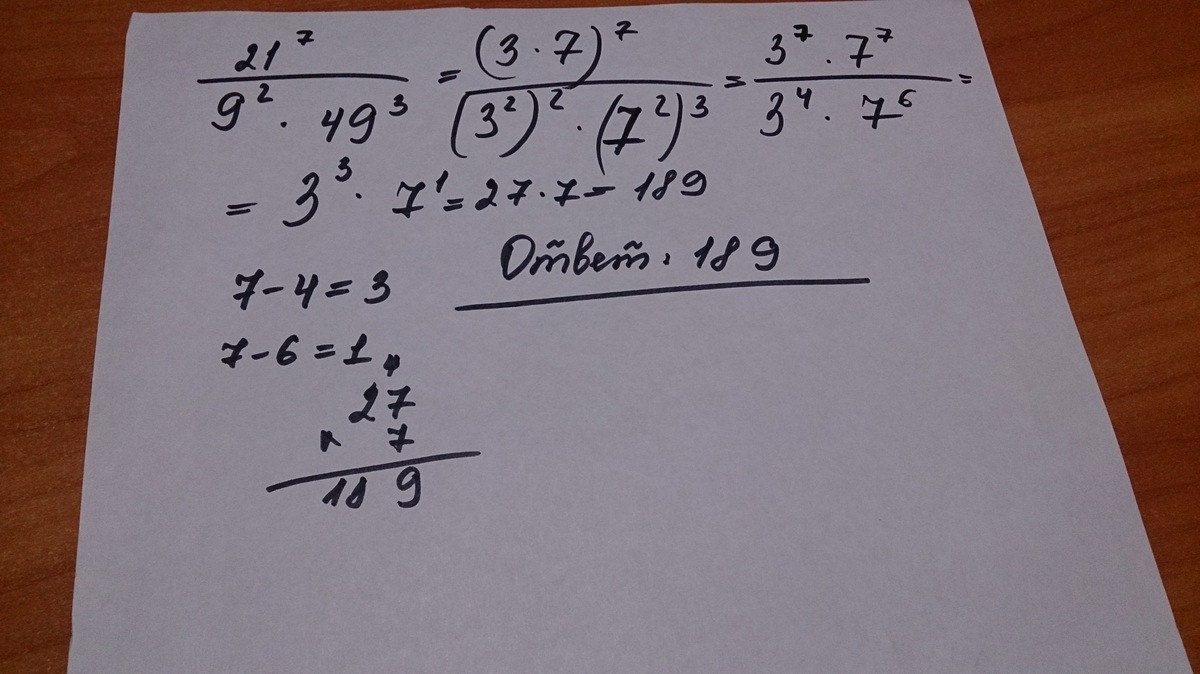 21⁷ / (9² · 49³) = (3 · 7)⁷ / ((3²)² · (7²)³) = (3⁷ · 7⁷) / (3⁴ · 7⁶) =
= 3³ · 7¹ = 27 · 7 = 189
Ответ: 189
7 - 4 = 3
7 - 6 = 1
27
× 7
189